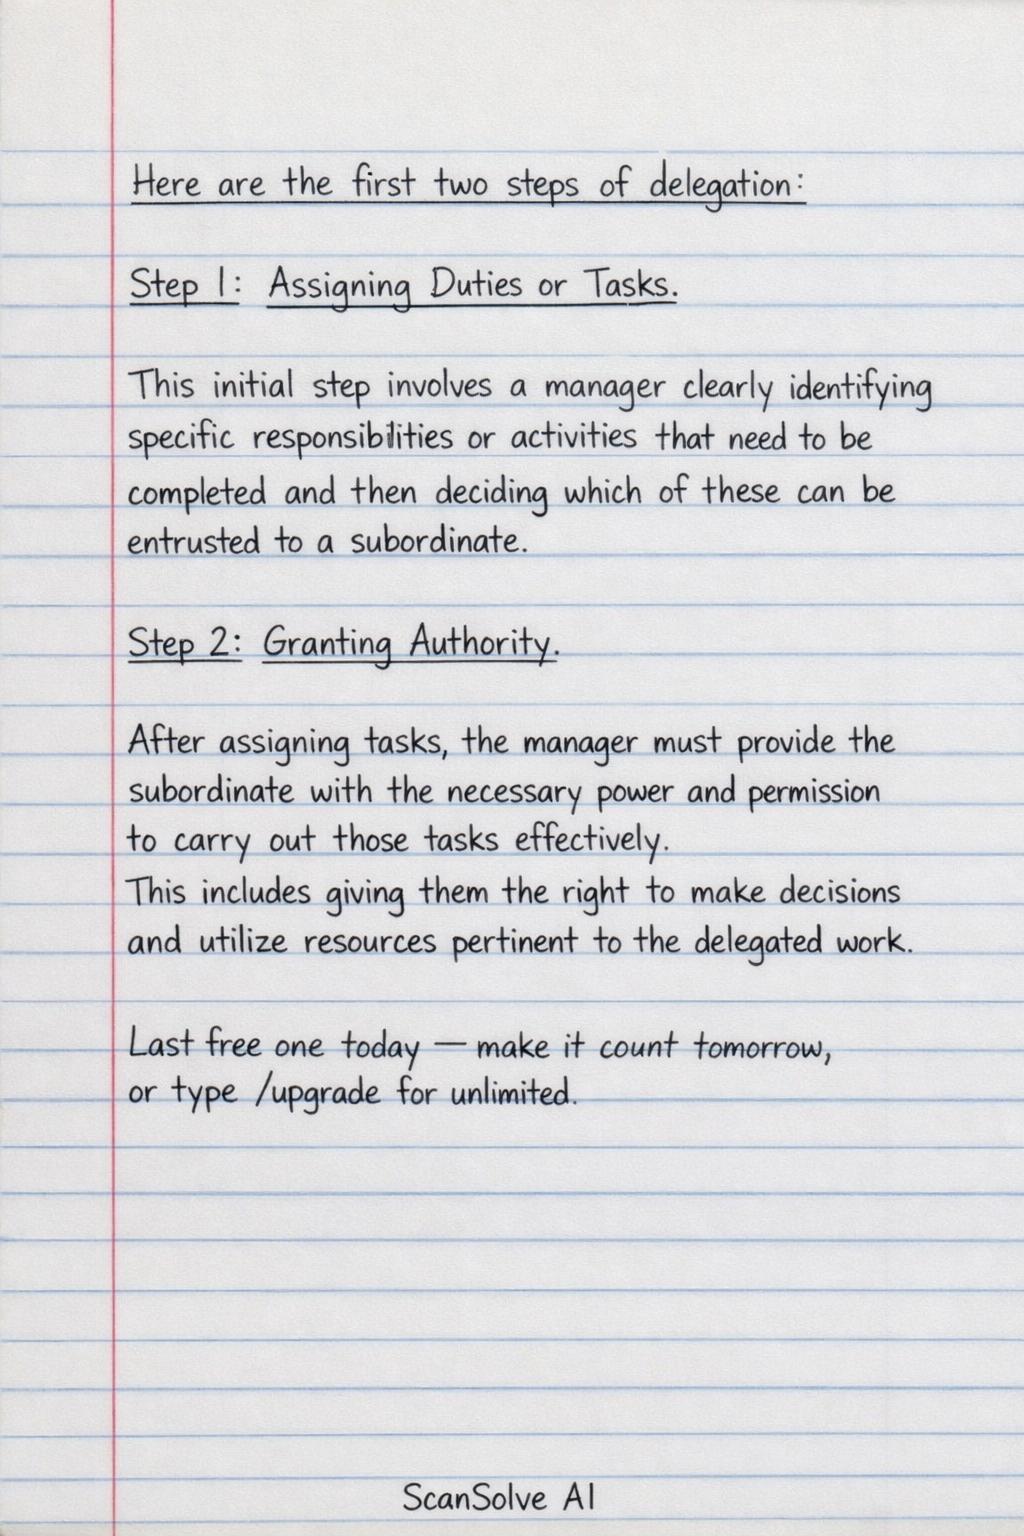 Here are the first two steps of delegation:
Step 1: Assigning Duties or Tasks.
This initial step involves a manager clearly identifying
specific responsibilities or activities that need to be
completed and then deciding which of these can be
entrusted to a subordinate.
Step 2: Granting Authority.
After assigning tasks, the manager must provide the
subordinate with the necessary power and permission
to carry out those tasks effectively.
This includes giving them the right to make decisions
and utilize resources pertinent to the delegated work.
Last free one today — make it count tomorrow,
or type /upgrade for unlimited.
ScanSolve AI